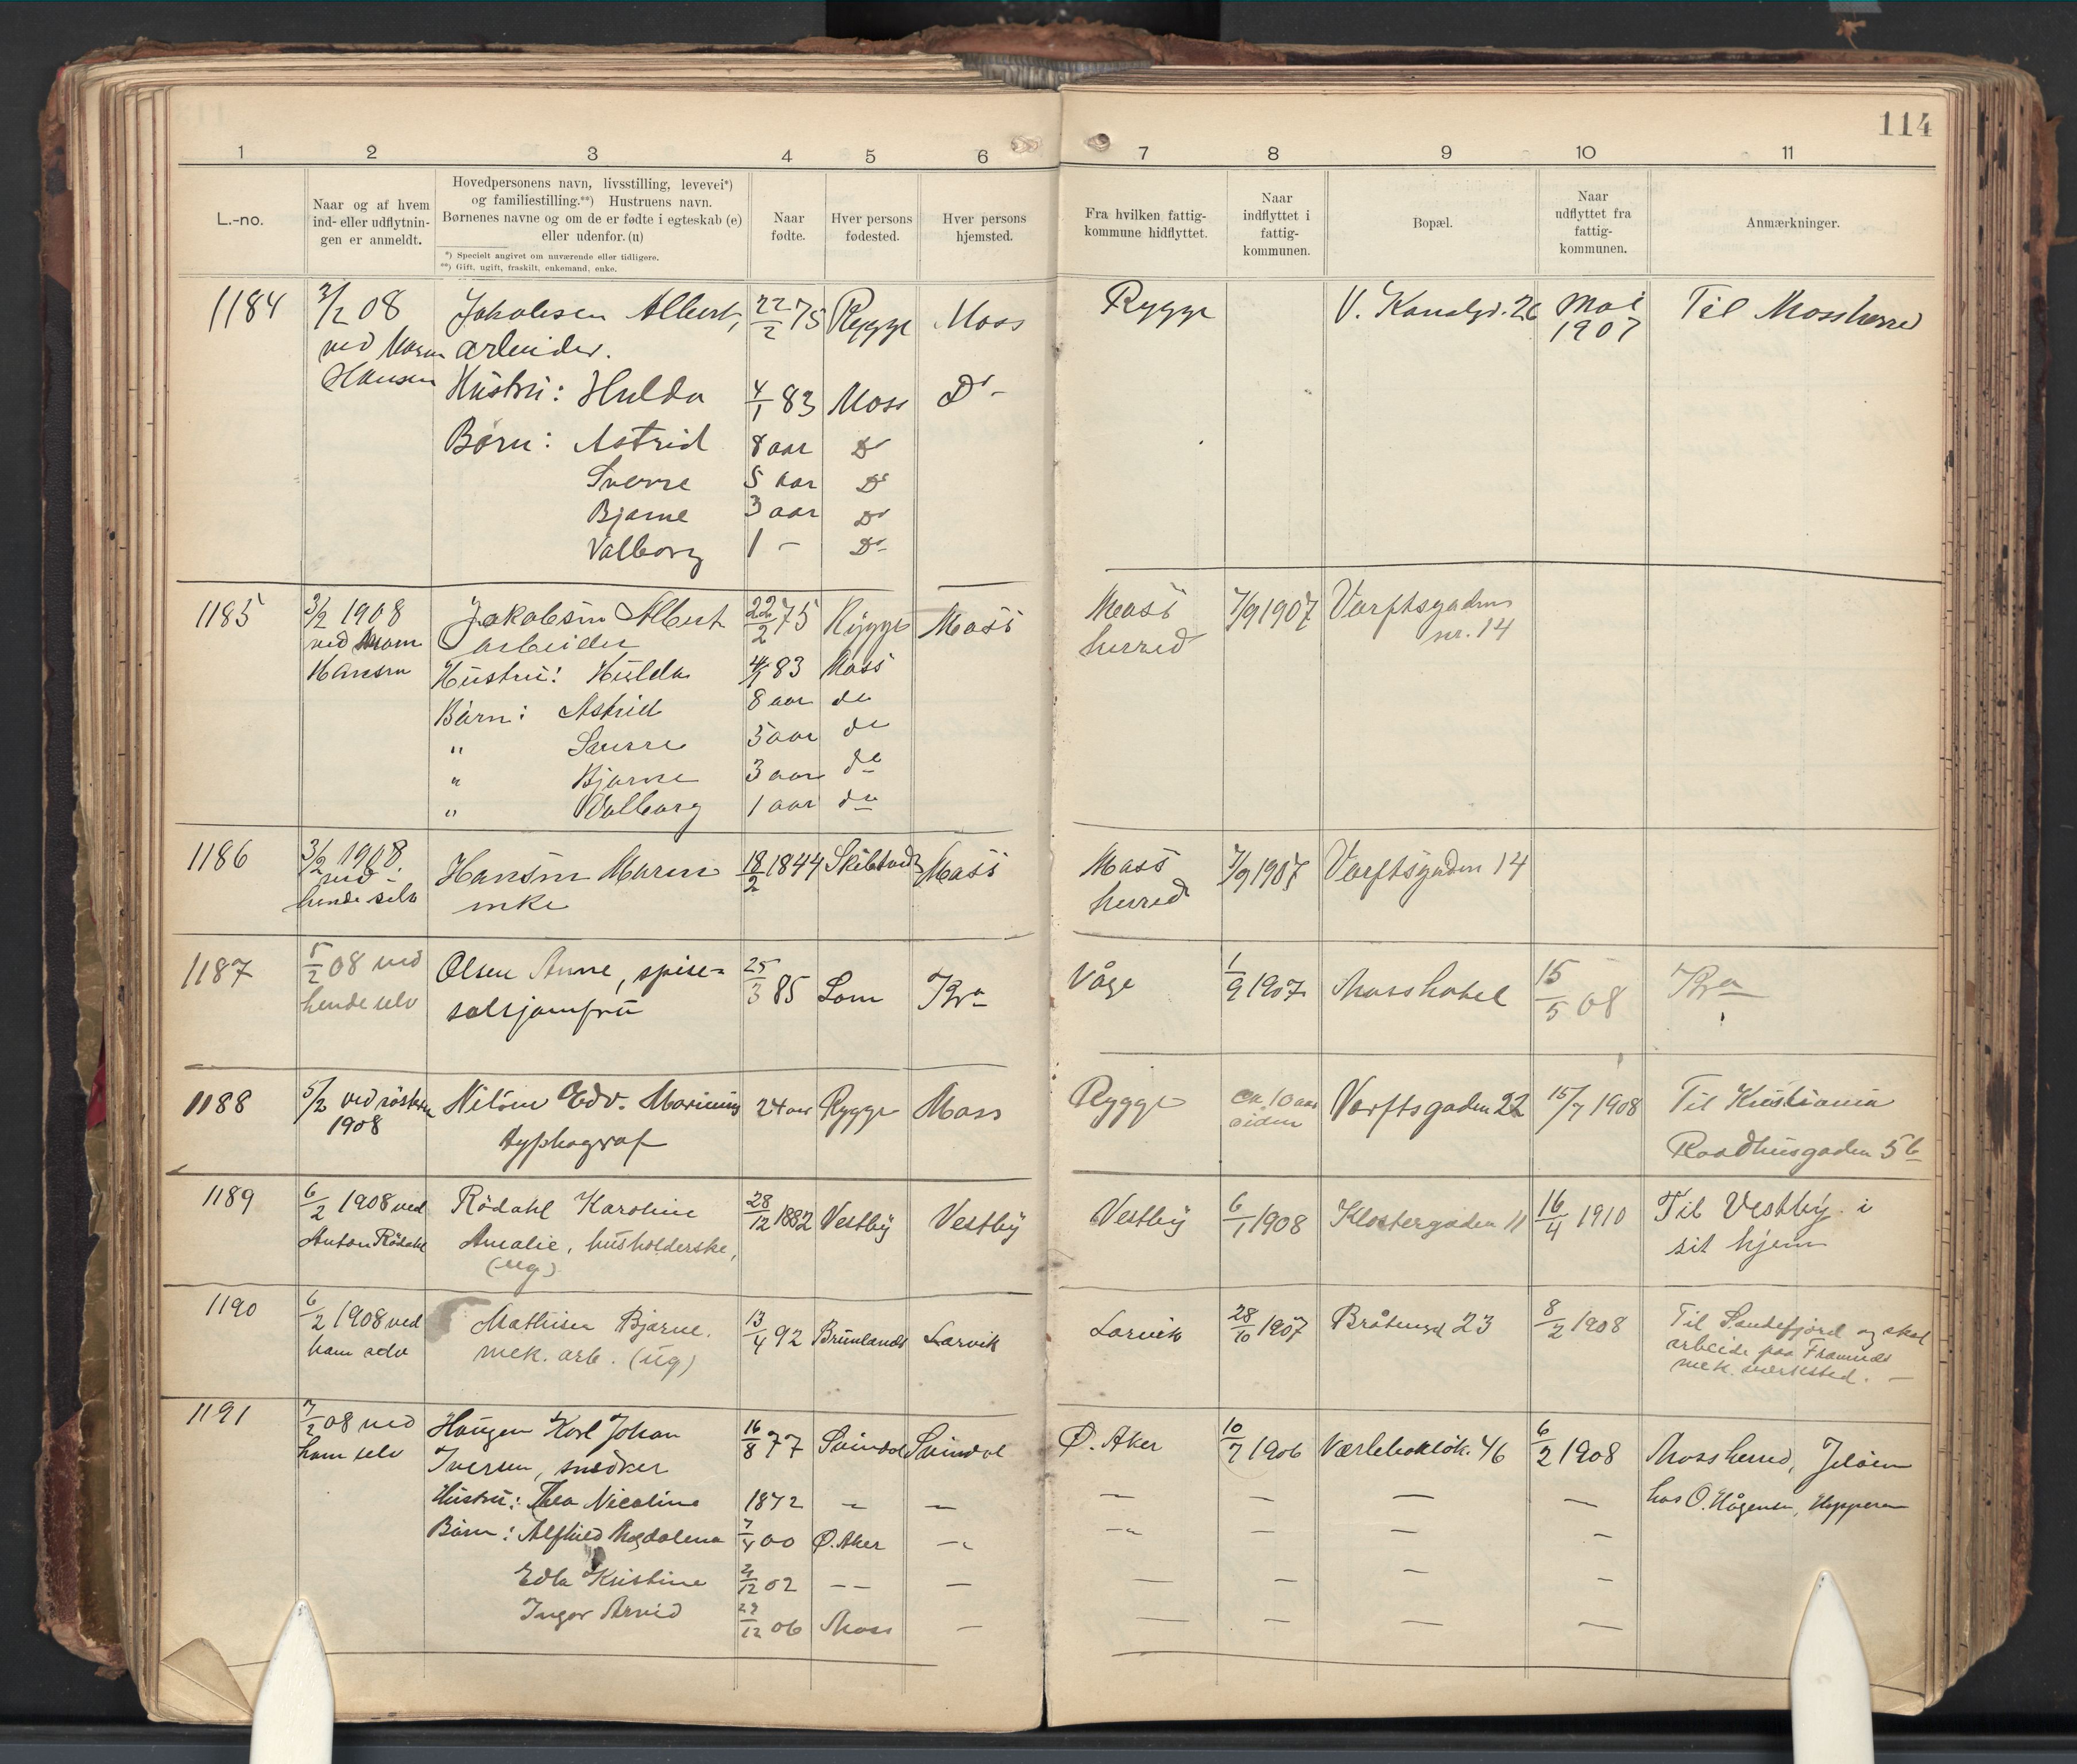 114
1 2 3 4 5 6 7 8 9 10 11
L.-no.
Naar og af hvem
ind- eller udflytnin-
gen er anmeldt.
Hovedpersonens navn, livsstilling, levevei*)
og familiestilling.**) Hustruens navn.
Børnenes navne og om de er fødte i egteskab (e)
eller udenfor. (u)
*) Specielt angivet om nuværende eller tidligere.
**) Gift, ugift, fraskilt, enkemand, enke.
Naar
fødte.
Hver persons
fødested.
Hver persons
hjemsted.
Fra hvilken fattig-
kommune hidflyttet.
Naar
indflyttet i
fattig-
kommunen.
Bopæl.
Naar
udflyttet fra
fattig-
kommunen.
Anmærkninger.
1184 3/2 08 Jakobsen Albert, 22/2 75 Rygge Moss Rygge V. Kanalgd. 26 Mai Til Mossherred
ved Maren arbeider. 1907
Hansen Hustru: Hulda 4/1 83 Moss Do -
Børn: Astrid 8 aar Do
Sverre 5 aar Do
Bjarne 3 aar Do
Valborg 1 - Do
1185 3/2 1908 Jakobsen Albert 22/2 75 Rygge Moss Moss 7/9 1907 Varftsgaden
ved Maren arbeider herred nr. 14
Hansen Hustru: Hulda 4/1 83 Moss
Børn: Astrid 8 aar do
" Sverre 5 aar do
" Bjarne 3 aar do
" Valborg 1 aar do
1186 3/2 1908 Hansen Maren 18/2 1844 Skibtvedt Moss Moss 7/9 1907 Varftsgaden 14
ved enke herred
hende selv
1187 5/2 08 ved Olsen Anne, spise- 25/3 85 Lom Kra Våge 1/9 1907 Moss hotel 15/5 08 Kra
hende selv salsjomfru
1188 5/2 ved søsteren Nilsen Edv. Marinius 24 aar Rygge Moss Rygge ca. 10 aar Varftsgaden 22 15/7 1908 Til Kristiania
1908 typhograf siden Raadhusgaden 5 b
1189 6/2 1908 ved Rödahl Karoline 28/12 1882 Vestby Vestby Vestby 6/1 1908 Klostergaden 11 16/4 1910 Til Vestby i
Anton Rödahl Amalie, husholderske, sit hjem
(ug)
1190 6/2 1908 ved Mathisen Bjarne. 13/4 92 Brunlands Larvik Larvik 28/6 1907 Bråtengd 23 8/2 1908 Til Sandefjord og skal
ham selv mek. arb. (ug) arbeide paa Framnæs
mek. værksted. -
1191 7/2 08 ved Haugen Karl Johan 16/8 77 Svindal Svindal Ø. Aker 10/7 1906 Værlebakløk. 46 6/2 1908 Mossherred, Jeløen
ham selv Iversen, snedker hos O. Hågensen, Hoppern
Hustru: Thea Nicoline 1872 - - - - - -
Børn: Alfhild Magdalena 7/4 00 Ø. Aker - - - - -
Edla Kristine 4/12 02 - - - - - - -
Ingar Arvid 29/12 06 Moss - - - - -